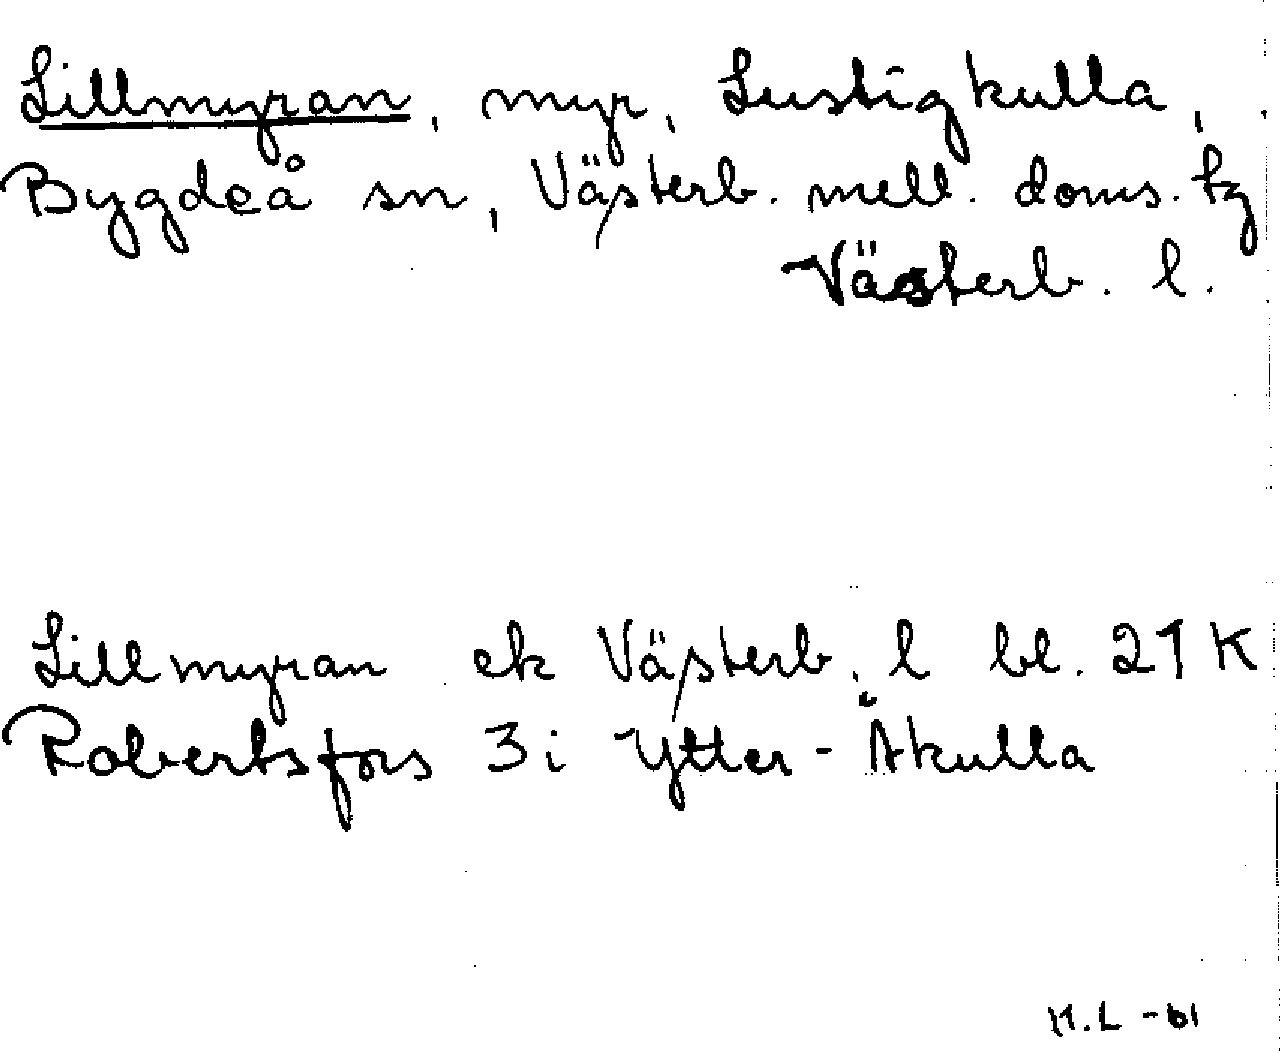 Lillmyran, myr, Lustigkulla,
Bygdeå sn, Västerb. mell. doms. tg
Västerb. l.
Lillmyran ek Västerb. l bl. 21 K
Robertsfors 3 i Ytter-Åkulla
M.L -61